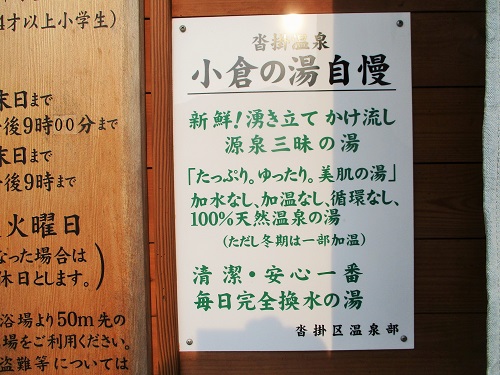 4才以上小学生)
末日まで
後9時00分まで
末日まで
後9時まで
火曜日
なった場合は
休日とします。)
浴場より50m先の
場をご利用ください。
盗難等については
沓掛温泉
小倉の湯自慢
新鮮!湧き立て かけ流し
源泉三昧の湯
「たっぷり。ゆったり。美肌の湯」
加水なし、加温なし、循環なし、
100%天然温泉の湯
(ただし冬期は一部加温)
清潔・安心一番
毎日完全換水の湯
沓掛区温泉部